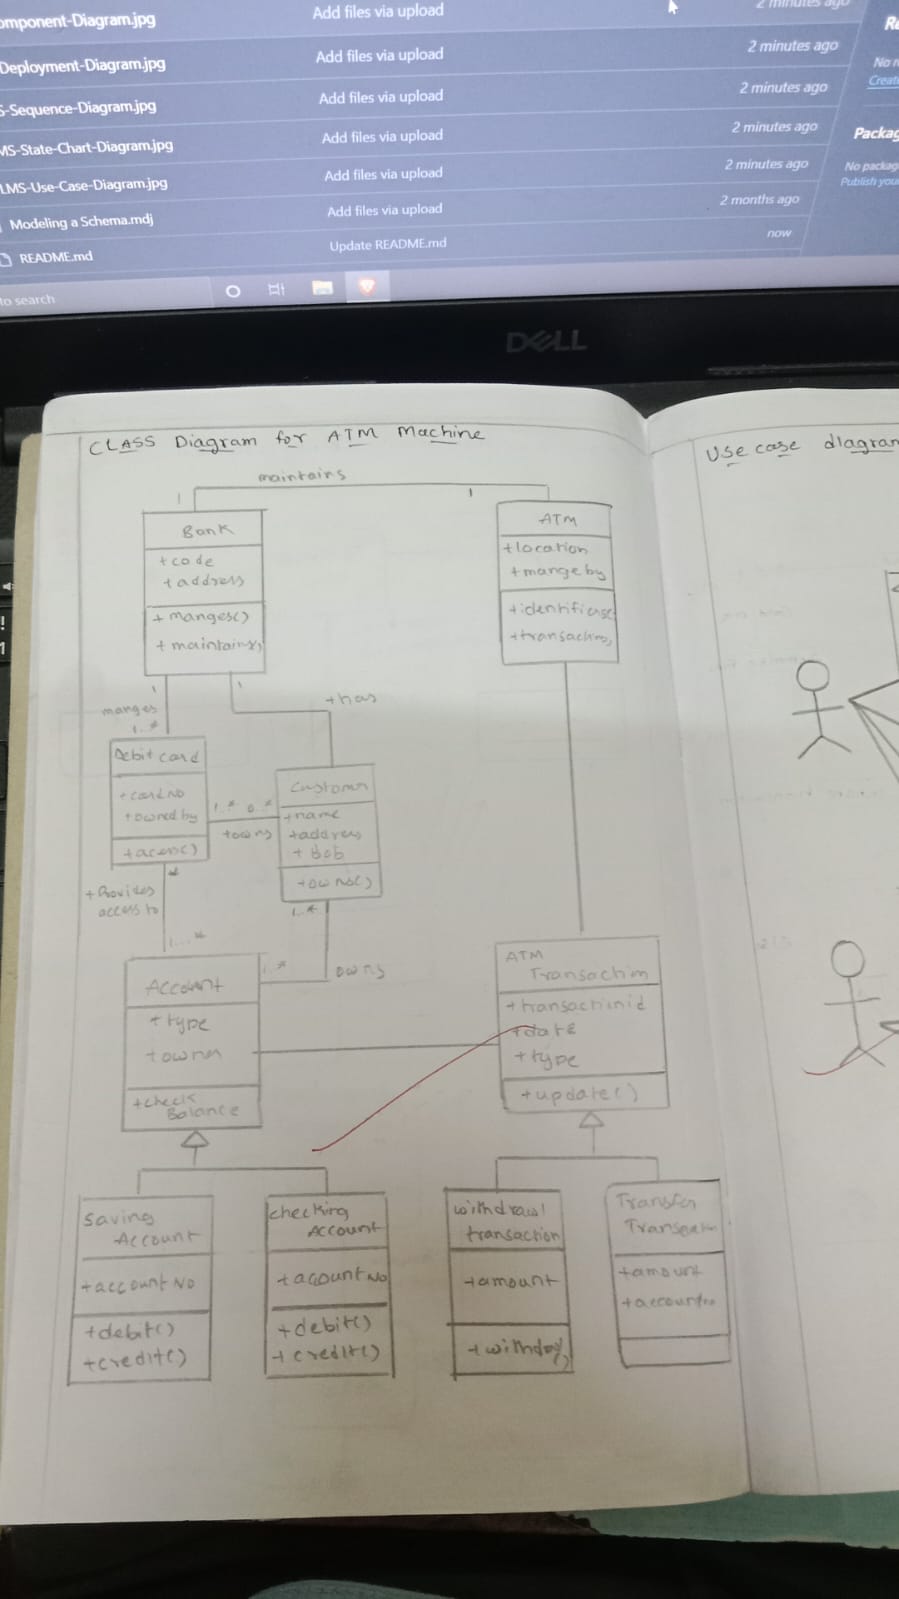 omponent-Diagram.jpg Add files via upload 2 minutes ago
Deployment-Diagram.jpg Add files via upload 2 minutes ago
S-Sequence-Diagram.jpg Add files via upload 2 minutes ago
MS-State-Chart-Diagram.jpg Add files via upload 2 minutes ago
LMS-Use-Case-Diagram.jpg Add files via upload 2 minutes ago
Modeling a Schema.mdj Add files via upload 2 months ago
README.md Update README.md now
Re
No r
Creat
Packag
No packag
Publish you
to search
DELL
CLASS Diagram for ATM Machine
maintains
1
1
Bank
+code
+address
+manges()
+maintains,
ATM
+location
+mangeby
+identifi
+transactin,
1
manges
1..*
1
+has
Debit card
+cardNo
+owned by
+acces()
1..* 0..*
+owns
Customer
+name
+address
+Dob
+owns()
1..*
+Provides
access to
1...*
1..*
owns
Account
+type
+owner
+check
Balance
ATM
Transactim
+transactinid
+date
+type
+update()
Saving
Account
+account No
+debit()
+credit()
checking
Account
+acount No
+debit()
+credit()
withdrawl
transaction
+amount
Transfer
+amount
use case diagram